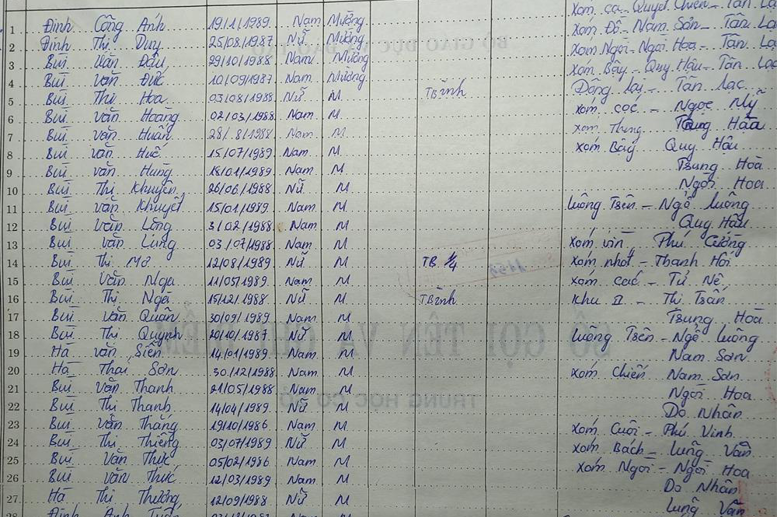 1 Đinh Công Anh 19/11/1989 Nam Mường Xóm Cả - Quyết Chiến - Tân Lạc
2 Đinh Thị Duy 25/08/1987 Nữ Mường Xóm Đô - Nam Sơn - Tân Lạc
3 Bùi Văn Đậu 29/10/1988 Nam Mường Xóm Ngòi - Ngòi Hoa - Tân Lạc
4 Bùi Văn Đức 10/09/1987 Nam Mường Xóm Bậy - Quy Hậu - Tân Lạc
5 Bùi Thị Hoa 03/08/1988 Nữ M TBinh Đông Lai - Tân Lạc
6 Bùi Văn Hoàng 02/03/1988 Nam M Xóm Cóc - Ngọc Mỹ
7 Bùi Văn Huân 28/8/1988 Nam M Xóm Thung Trung Hòa
8 Bùi Văn Huê 15/07/1989 Nam M Xóm Bậy Quy Hậu
9 Bùi Văn Hùng 18/01/1989 Nam M Trung Hoà
10 Bùi Thị Khuyên 26/06/1988 Nữ M Ngòi Hoa
11 Bùi Văn Khuyết 15/01/1989 Nam M Luông Trên - Ngổ Luông
12 Bùi Văn Lòng 31/02/1988 Nam M Quy Hậu
13 Bùi Văn Lùng 03/07/1988 Nam M Xóm Vin Phú Cường
14 Bùi Thị Mơ 12/08/1989 Nữ M TB 1/4 Xóm Nhót - Thanh Hối
15 Bùi Văn Nga 11/05/1989 Nam M Xóm Cóc - Tử Nê
16 Bùi Thị Nga 15/12/1988 Nữ M TBinh Khu II - Thị Trấn
17 Bùi Văn Quân 30/09/1989 Nam M Trung Hoà
18 Bùi Thị Quynh 12/10/1987 Nữ M Luông Trên - Ngổ Luông
19 Hà Văn Siên 14/01/1989 Nam M Nam Sơn
20 Hà Thái Sơn 30/12/1988 Nam M Xóm Chiến Nam Sơn
21 Bùi Văn Thanh 21/05/1988 Nam M Ngòi Hoa
22 Bùi Thị Thanh 14/04/1989 Nữ M Do Nhân
23 Bùi Văn Thắng 19/10/1986 Nam M Xóm Cuôi - Phú Vinh
24 Bùi Thị Thiềng 03/07/1989 Nữ M Xóm Bách - Lũng Vân
25 Bùi Văn Thức 05/02/1986 Nam M Xóm Ngòi - Ngòi Hoa
26 Bùi Văn Thức 12/03/1989 Nam M Do Nhân
27 Hà Thị Thương 12/09/1988 Nữ M Lũng Vân
28 Đinh Anh Tuấn